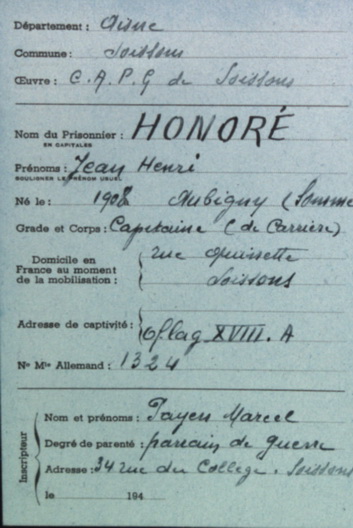 Département : Aisne
Commune : Soissons
Œuvre : C.A.P.G de Soissons
Nom du Prisonnier : HONORÉ
EN CAPITALES
Prénoms : Jean Henri
SOULIGNER LE PRÉNOM USUEL
Né le : 1908 Aubigny (Somme
Grade et Corps : Capitaine (de Carrière)
Domicile en France au moment de la mobilisation : rue
Soissons
Adresse de captivité : Oflag XVIII. A
No Mle Allemand : 1324
Inscripteur
Nom et prénoms : Payen Marcel
Degré de parenté : parrain de guerre
Adresse : 34 rue du Collège. Soissons
le 194